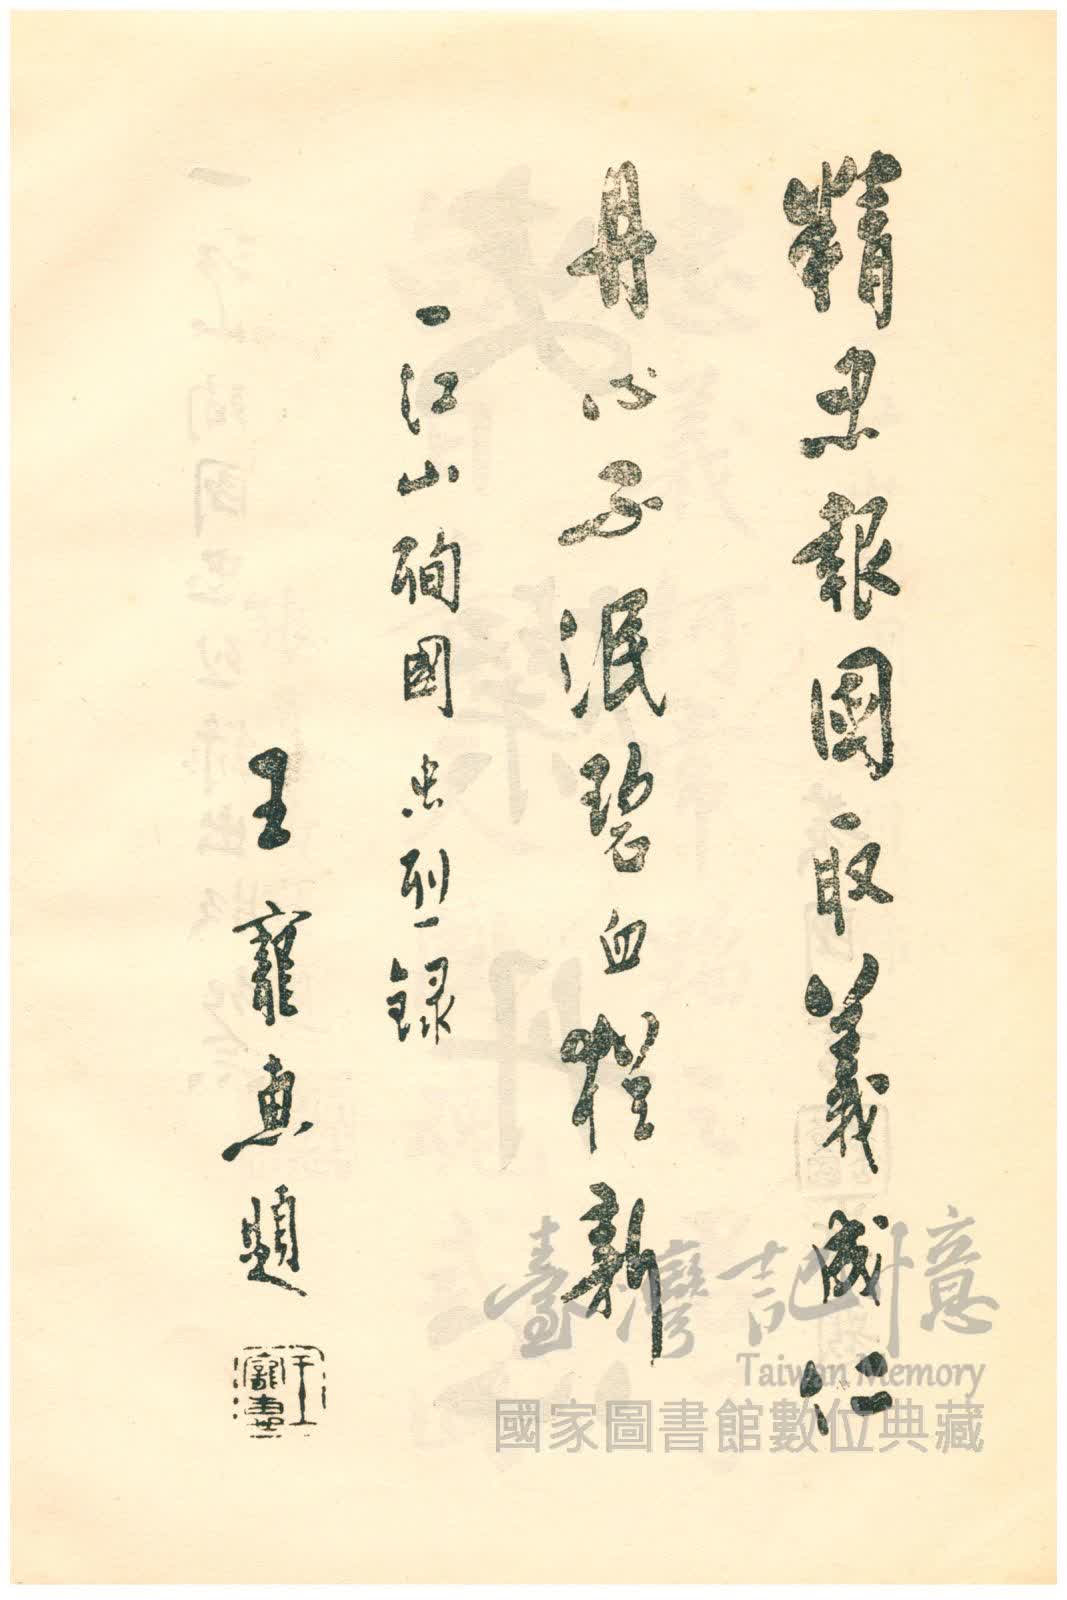 精忠報國取義成仁
丹心不泯碧血新
一江山殉國忠烈錄
王寵惠題
王寵惠
臺灣記憶
Taiwan Memory
國家圖書館數位典藏